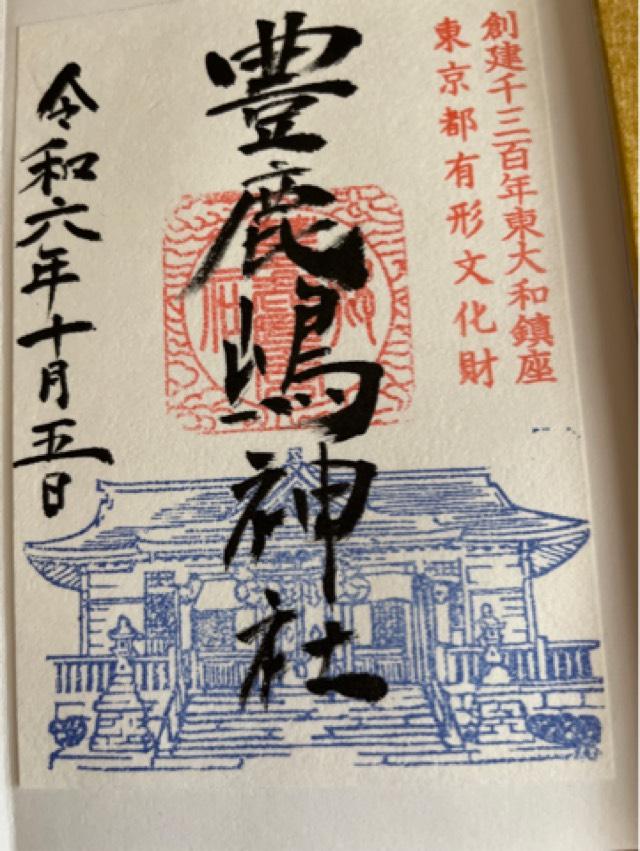 創建千三百年東大和鎮座
東京都有形文化財
豊鹿嶋神社
令和六年十月五日